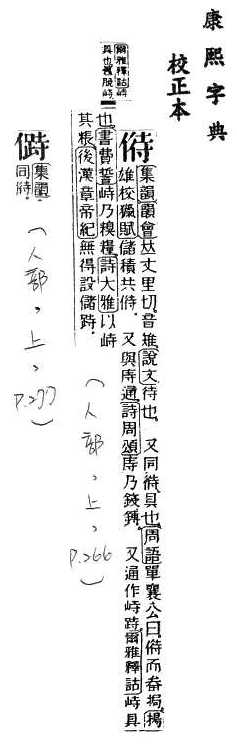 康熙字典
校正本
爾雅釋詁峙
具也舊脫峙
偫
集韻韻會𠀤丈里切音雉說文待也。又同具也周語單襄公曰偫而畚挶。揚
雄校獵賦儲積共偫。又與庤通詩周頌庤乃錢鎛 又通作峙跱爾雅釋詁峙具
也書費誓峙乃糗糧詩大雅以峙
其粻後漢章帝紀無得設儲跱。
(人部、上、P.266)
集韻
同偫。
(人部、上、P.277)